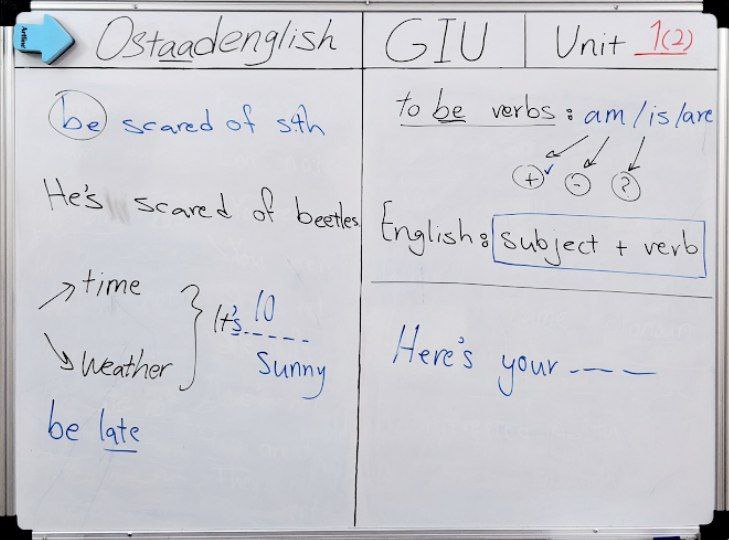 Ostaadenglish
GIU
Unit 1(2)
be scared of s.th
He's scared of beetles
time
weather
It's 10
Sunny
be late
to be verbs : am/is/are
+ - ?
English: subject + verb
Here's your ----